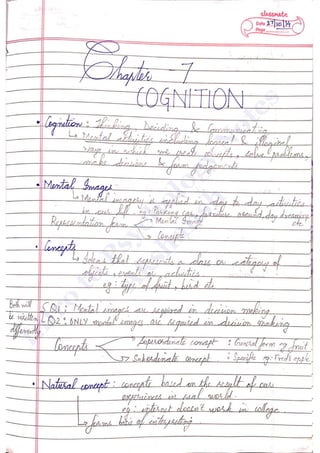 classmate
Date
Page
Chapter - 7
COGNITION
• Cognition : Thinking, Deciding & Communicating
↳ Mental activities including usual &
ways in which we great people, solve problems,
make decisions & form judgements
• Mental Images
↳ Mental imagery is applied in day to day activities
in our life. eg: Parking car, furniture around, day dreaming
etc
Representation form → Mental Images
→ Concepts
• Concepts
↳ Ideas that represents a class or category of
objects, events or activities.
eg: type of fruit, bird etc
Both will be written differently
Q1: Mental images are required in decision making
Q2: ONLY mental images are required in decision making
Concepts → Superordinate concept : General form → fruit
→ Subordinate concept : Specific eg: Fruit's apple
• Natural concept : concepts based on the result of our
experiences in real world.
eg: internet doesn't work in college
↳ forms basis of interpreting